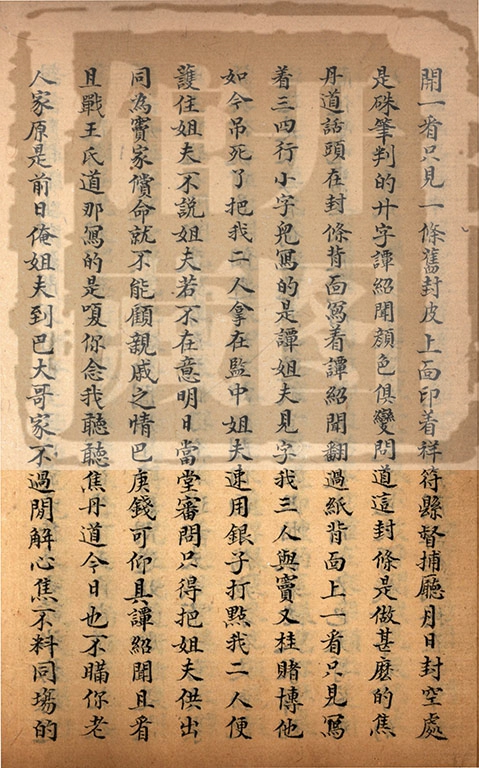 開一看只見一條舊封皮上面印着祥符縣督捕廳月日封空處
是硃筆判的廿字譚紹聞顏色俱變問道這封條是做甚麽的焦
丹道話頭在封條背面寫着譚紹聞翻過紙背面上一看只見寫
着三四行小字兒寫的是譚姐夫見字我三人與竇又桂賭博他
如今吊死了把我二人拿在監中姐夫速用銀子打點我二人便
護住姐夫不說姐夫若不在意明日當堂審問只得把姐夫供出
同為竇家償命就不能顧親戚之情巴庚錢可仰具譚紹聞且看
且戰王氏道那寫的是嗄你念我聽聽焦丹道今日也不瞞你老
人家原是前日俺姐夫到巴大哥家不過閒解心焦不料同塲的